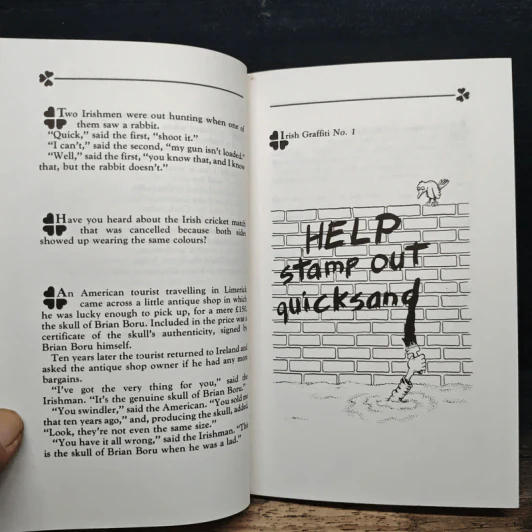 Two Irishmen were out hunting when one of
them saw a rabbit.
"Quick," said the first, "shoot it."
"I can't," said the second, "my gun isn't loaded."
"Well," said the first, "you know that, and I know
that, but the rabbit doesn't."
Have you heard about the Irish cricket match
that was cancelled because both sides
showed up wearing the same colours?
An American tourist travelling in Limerick
came across a little antique shop in which
he was lucky enough to pick up, for a mere £150,
the skull of Brian Boru. Included in the price was a
certificate of the skull's authenticity, signed by
Brian Boru himself.
Ten years later the tourist returned to Ireland and
asked the antique shop owner if he had any more
bargains.
"I've got the very thing for you," said the
Irishman. "It's the genuine skull of Brian Boru."
"You swindler," said the American. "You sold me
that ten years ago," and, producing the skull, added,
"Look, they're not even the same size."
"You have it all wrong," said the Irishman. "This
is the skull of Brian Boru when he was a lad."
Irish Graffiti No. 1
HELP
stamp out
quicksand